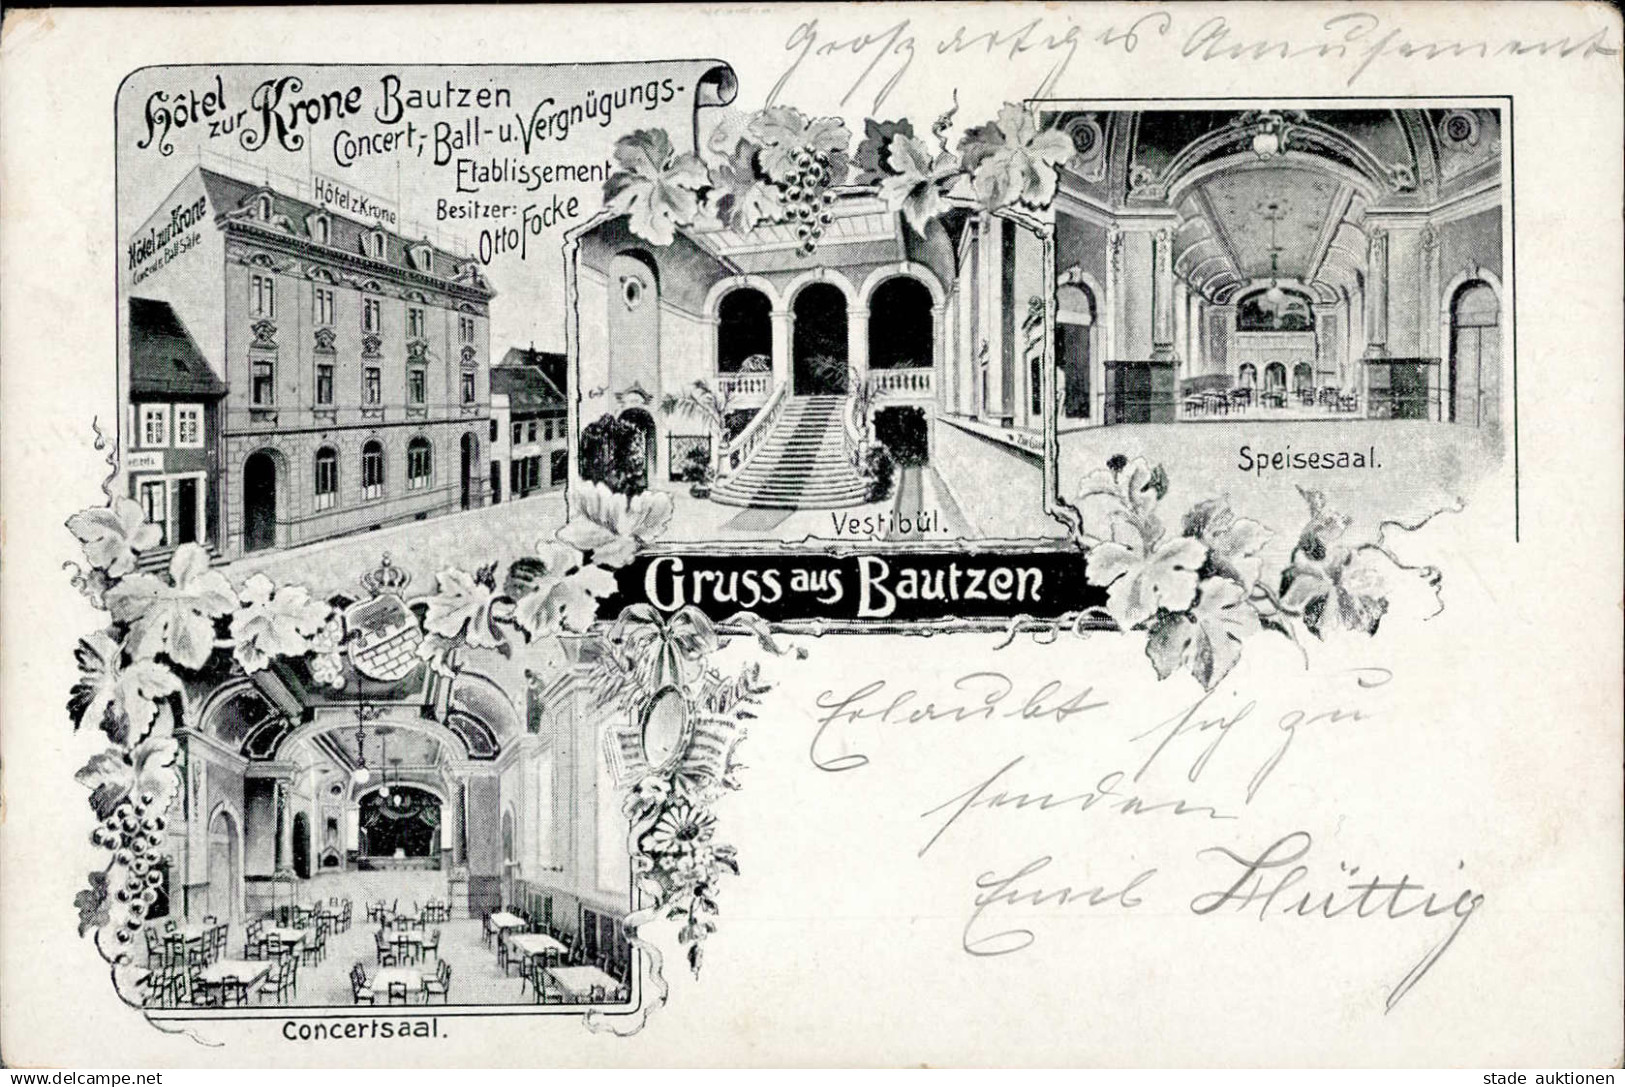 Großartiges Amusement
Hôtel
zur Krone Bautzen
Concert-, Ball- u. Vergnügungs-
Etablissement
Besitzer:
Otto Focke
Hôtel z. Krone
Hôtel zur Krone
Concert u. Ball-Säle
Speisesaal.
Vestibül.
Gruss aus Bautzen
Erlaubt sich zu
senden
Emil Hüttig
Concertsaal.
stade auktionen